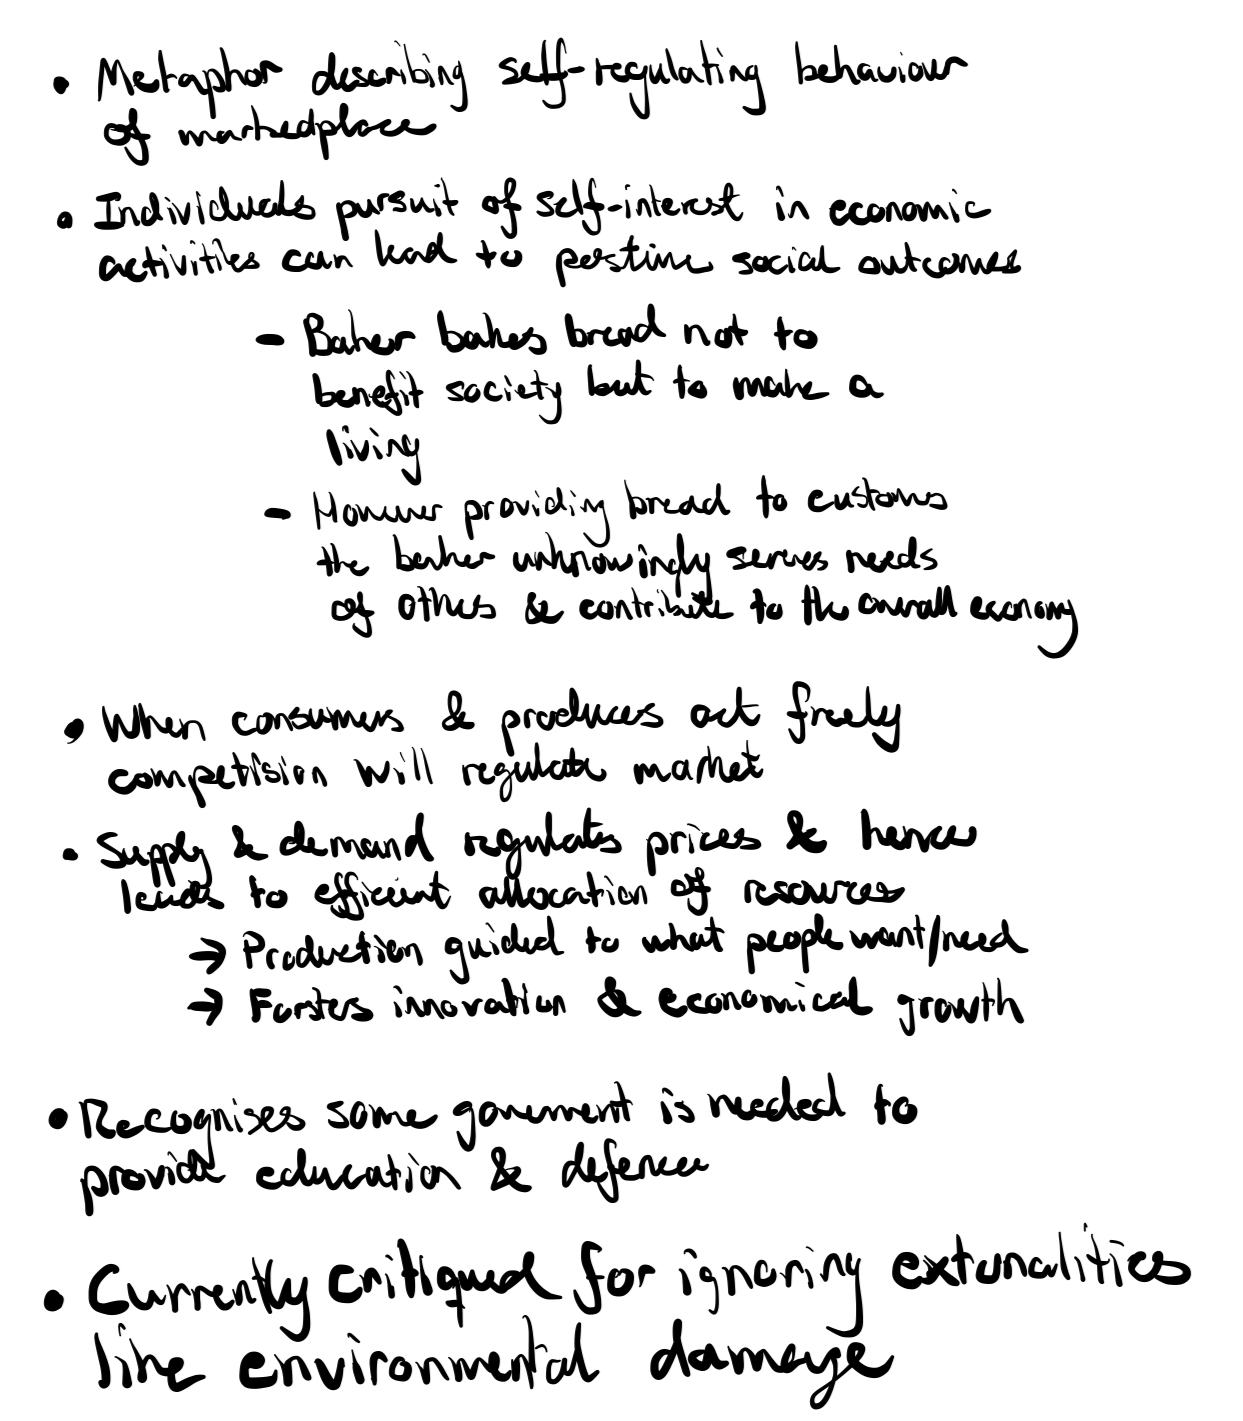 • Metaphor describing self-regulating behaviour
of marketplace
• Individuals pursuit of self-interest in economic
activities can lead to positive social outcomes
- Baker bakes bread not to
benefit society but to make a
living
- However providing bread to customs
the baker unknowingly serves needs
of others & contribute to the overall economy
• When consumers & produces act freely
competision will regulate market
• Supply & demand regulates prices & hence
leads to efficient allocation of resources
→ Production guided to what people want/need
→ Forsters innovation & economical growth
• Recognises some goverment is needed to
provide education & defence
• Currently critiqued for ignoring externalities
like environmental damage